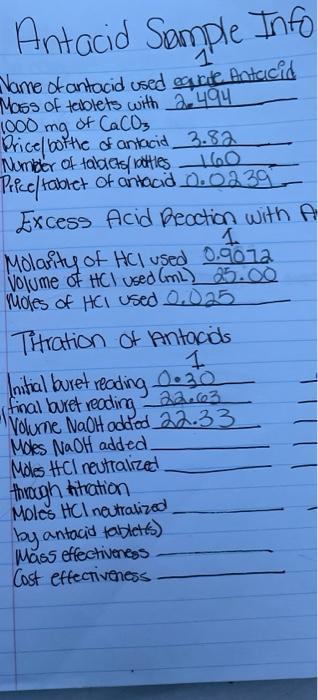 Antacid Sample Info
1
Name of antacid used equate Antacid
Mass of tablets with 2.494
1000 mg of CaCO3
Price/bottle of antacid 3.82
Number of tablets/bottles 160
Price/tablet of antacid 0.0239
Excess Acid Reaction with A
1
Molarity of HCl used 0.9072
Volume of HCl used (mL) 25.00
Moles of HCl used 0.025
Titration of Antacids
1
Initial buret reading 0.30
final buret reading 22.63
Volume NaOH added 22.33
Moles NaOH added
Moles HCl neutralized
through titration
Moles HCl neutralized
by antacid tablet(s)
Mass effectiveness
Cost effectiveness